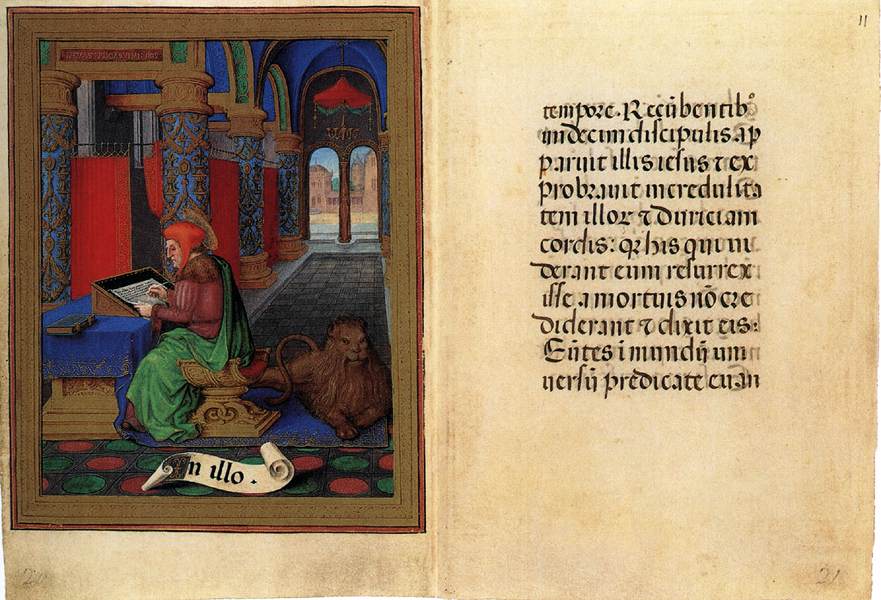 In illo .
11
tempore. Recūbentibꝰ
undecim discipulis ap
paruit illis iesus ⁊ ex
probrauit incredulita
tem illoꝝ ⁊ duriciam
cordis: qꝛ his qui ui
derant eum resurrex
isse a mortuis nō cre
diderant ⁊ dixit eis:
Eūtes ī mundū uni
uersū predicate euan
21